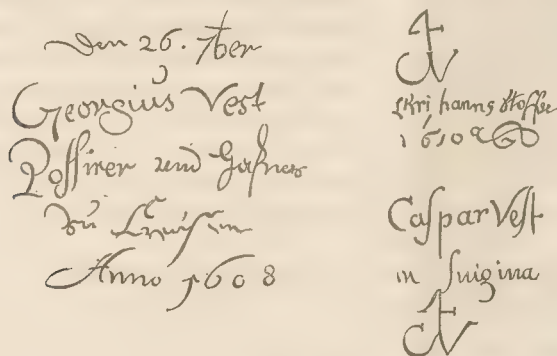 Den 26. 7ber
Georgius Vest
Possirer und Hafner
Zu
Anno 1608
hanns Stoffe
1610
Caspar Vest
in